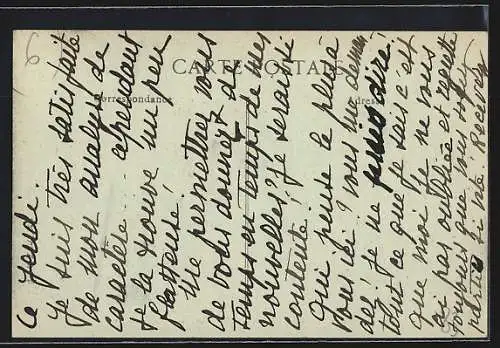 6
CARTE POSTALE
Correspondance
Adresse
Ce jeudi.
Je suis très satisfaite
de mon analyse de
caractère cependant
je la trouve un peu
flatteuse!
Me permettrez vous
de vous donner de
temps en temps de mes
nouvelles? Je serai si
contente!
Qui pense le plus à
vous ici? vous me deman
dez! je ne puis dire!
tout ce que je sais c'est
que moi je ne vous
ai pas oublié et regrette
toujours que vous soyez
parti si vite! Recevez